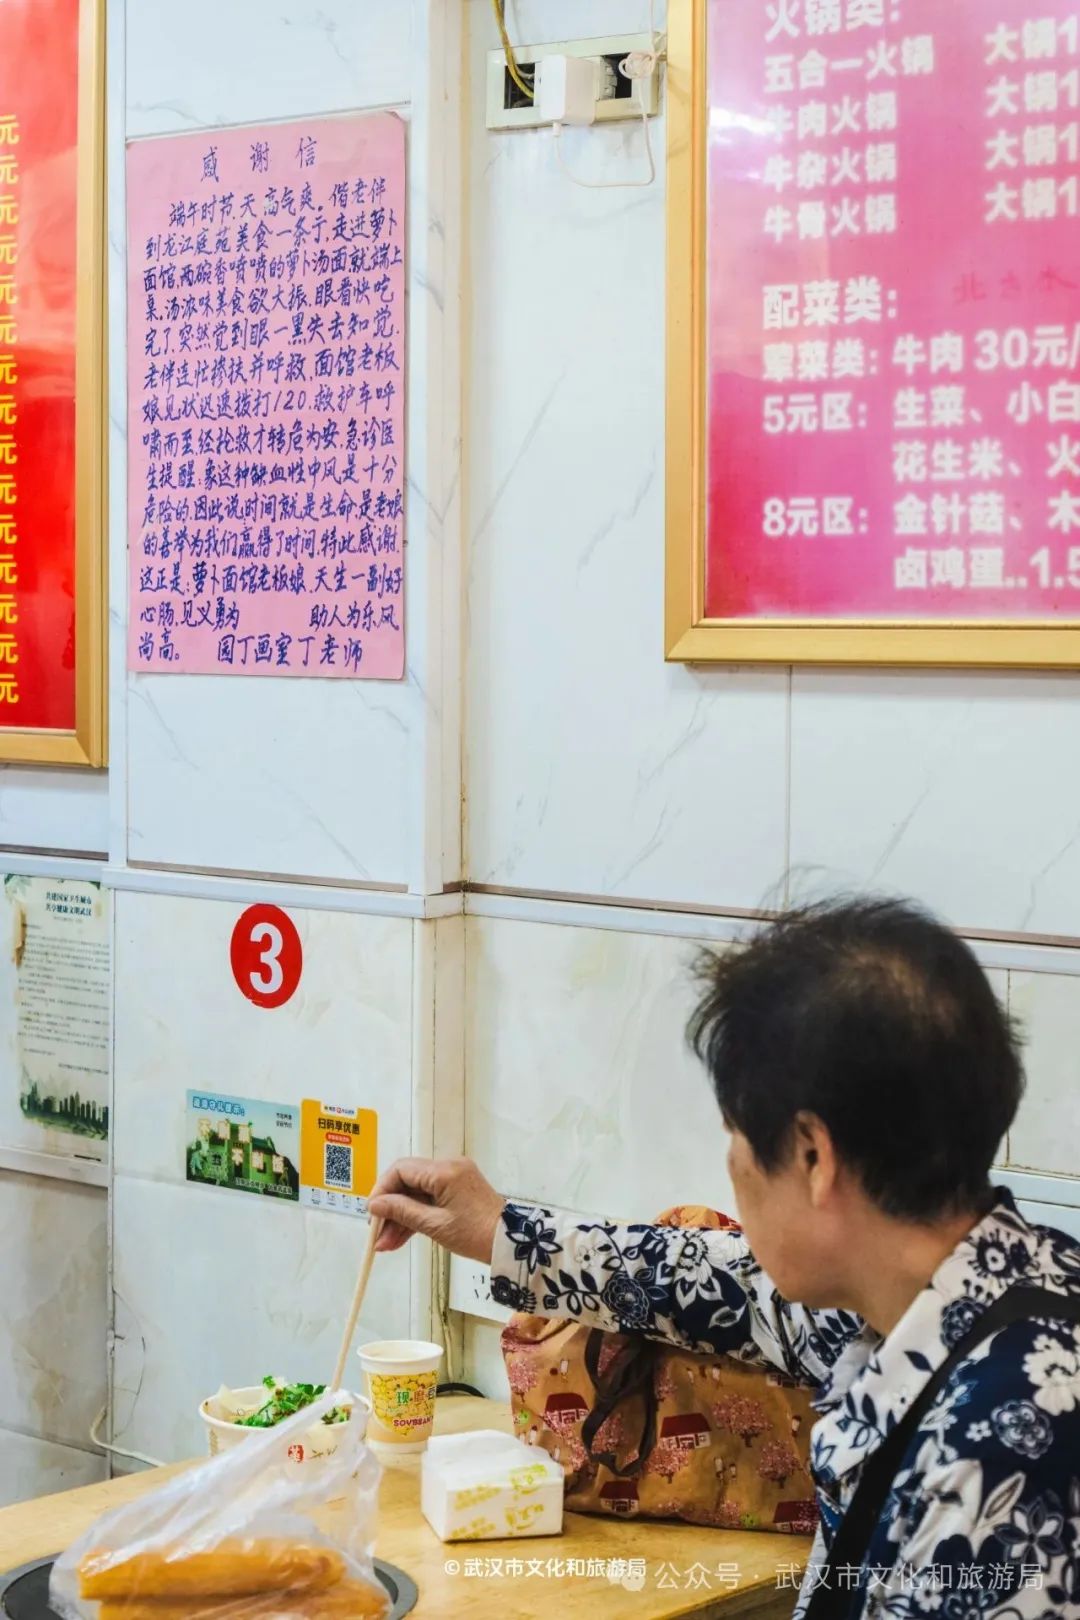 元
元
元
元
元
元
元
元
元
元
元
元
元
元
元
感谢信
端午时节,天高气爽。偕老伴
到龙江庭苑美食一条于,走进萝卜
面馆,两碗香喷喷的萝卜汤面就端上
桌。汤浓味美食欲大振,眼看快吃
完了,突然觉到眼一黑失去知觉.
老伴连忙掺扶并呼救,面馆老板
娘见状迅速拨打120.救护车呼
啸而至,经抢救才转危为安,急诊医
生提醒:象这种缺血性中风是十分
危险的,因此说,时间就是生命,是老娘
的善举为我们赢得了时间,特此感谢.
这正是:萝卜面馆老板娘,天生一副好
心肠,见义勇为 助人为乐,风
尚高。 园丁画室丁老师
火锅类:
五合一火锅 大锅1
牛肉火锅 大锅1
牛杂火锅 大锅1
牛骨火锅 大锅1
配菜类:
荤菜类:牛肉30元/
5元区:生菜、小白
花生米、火
8元区:金针菇、木
卤鸡蛋..1.5
共建国家卫生城市
共享健康文明武汉
3
扫码享优惠
现磨豆
SOYBEAN
©武汉市文化和旅游局
公众号·武汉市文化和旅游局